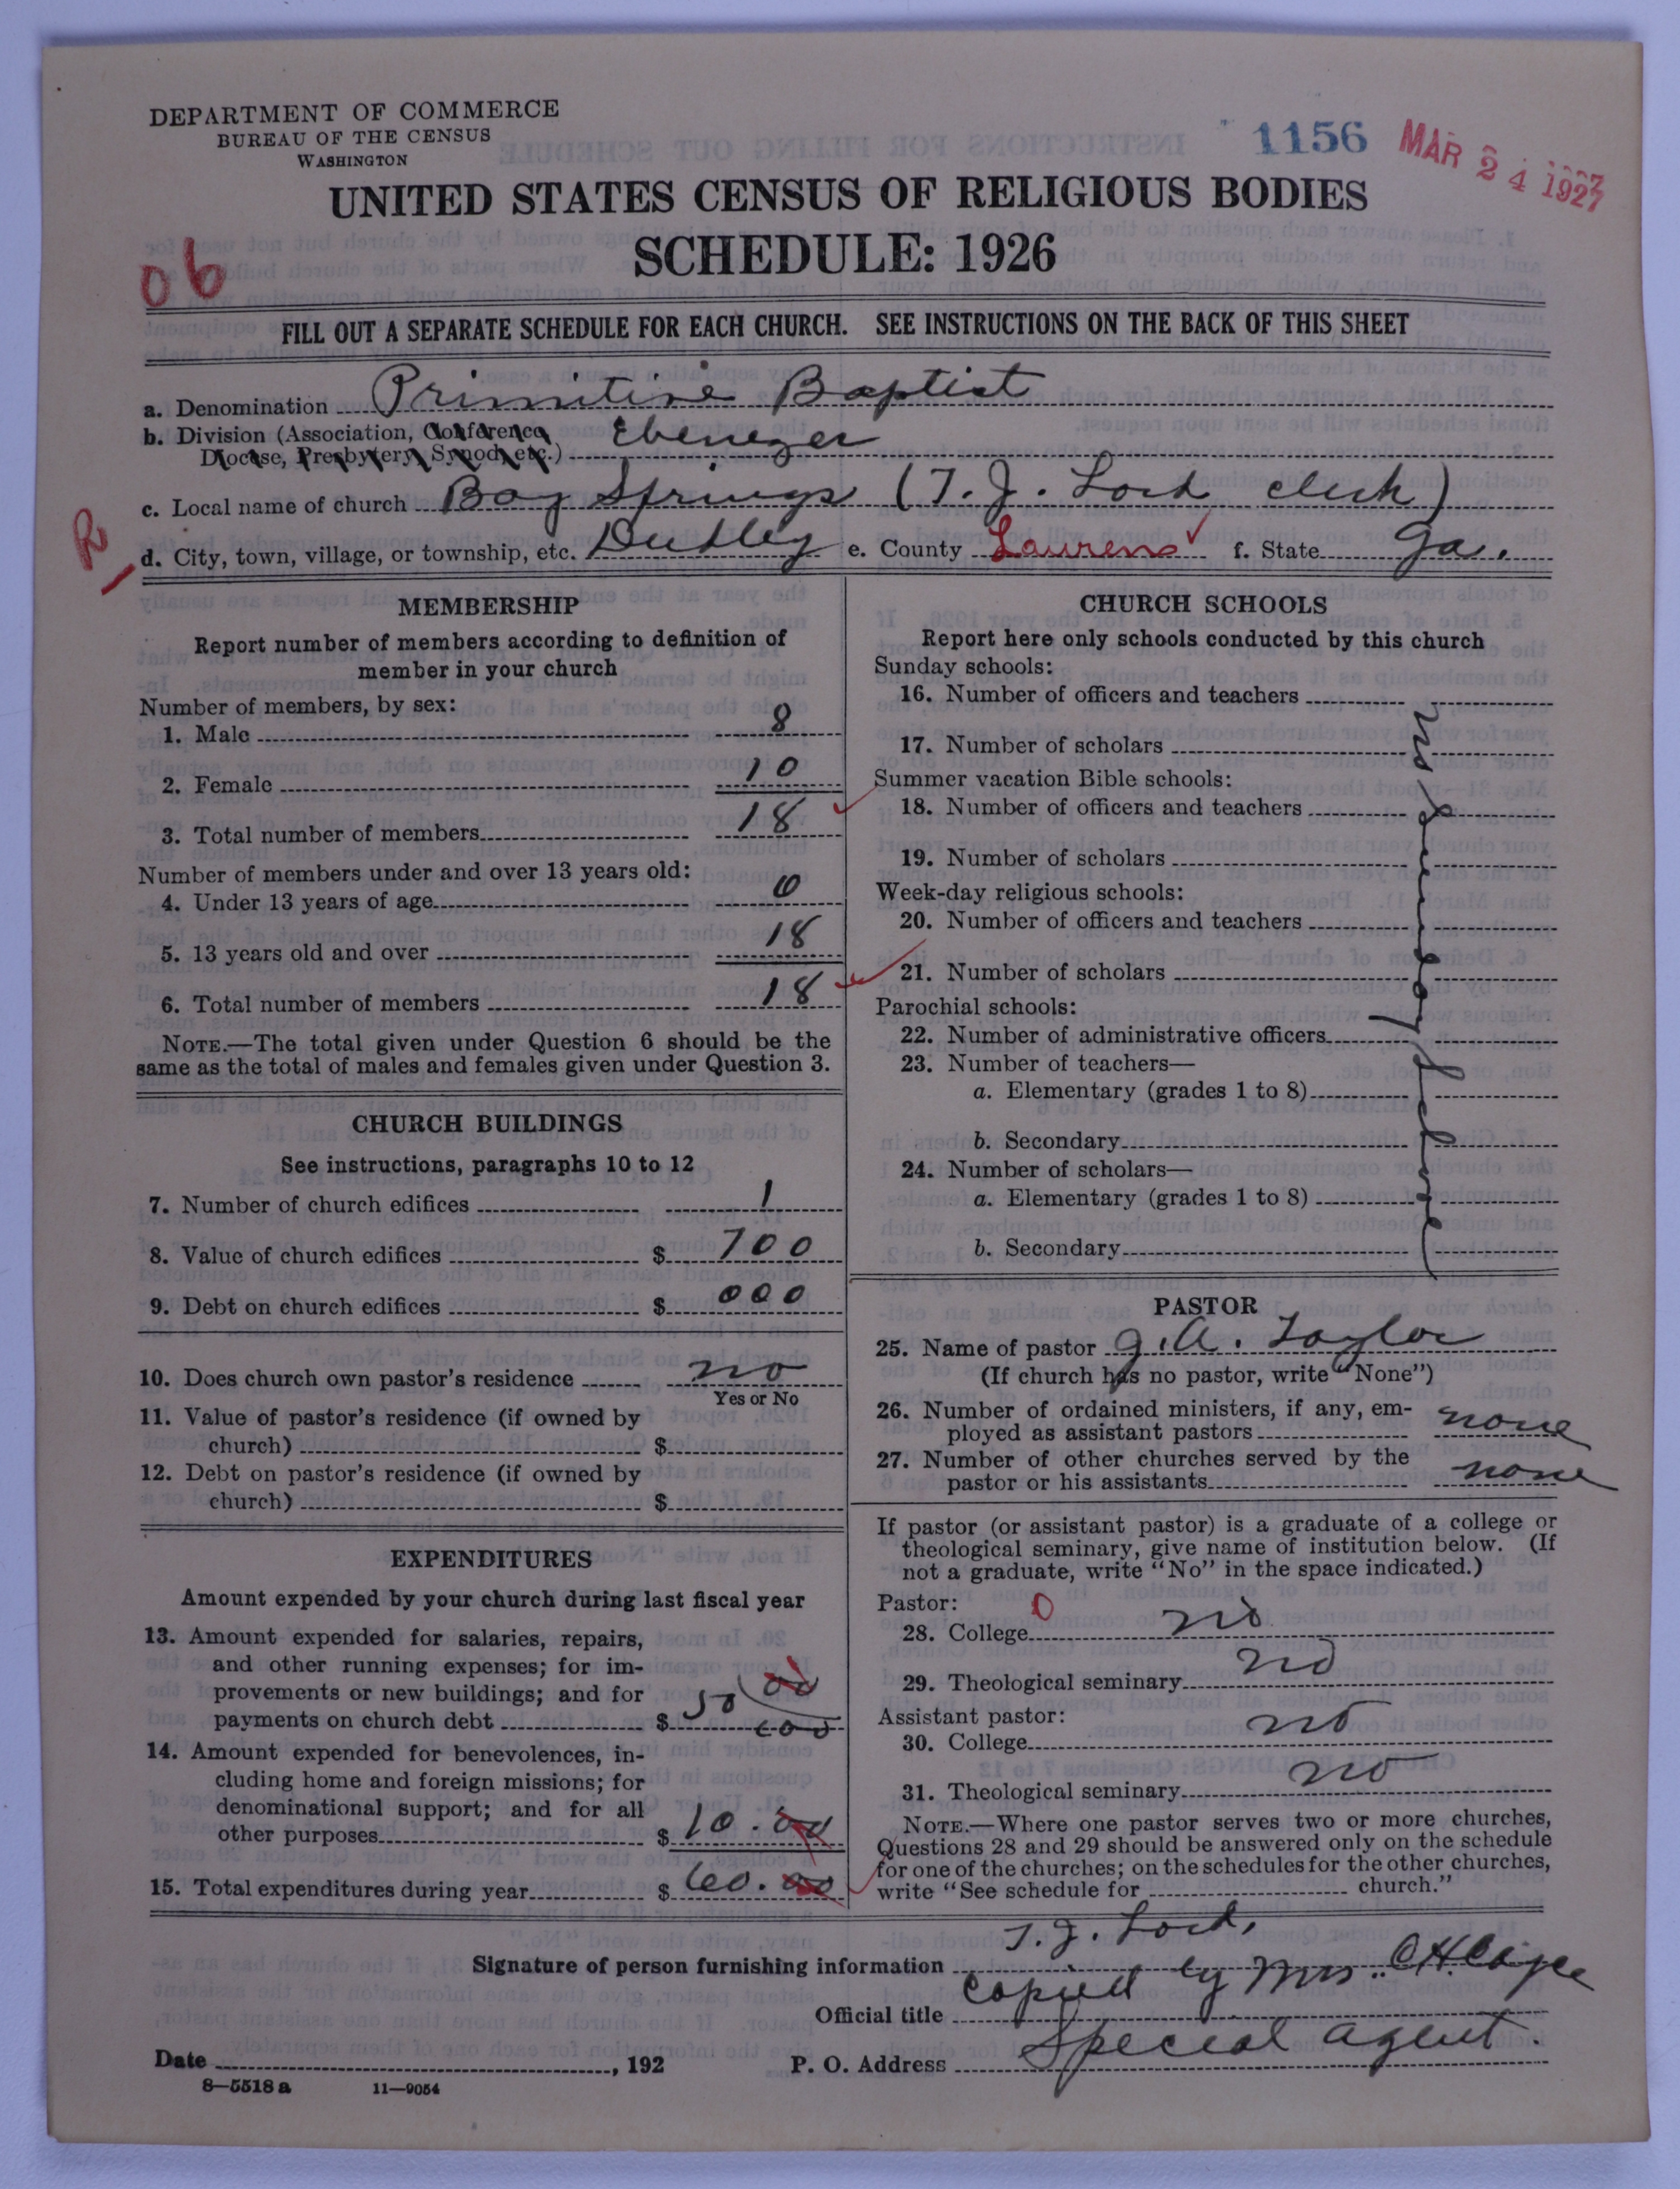 DEPARTMENT OF COMMERCE
BUREAU OF THE CENSUS
WASHINGTON
1156
MAR 24 1927
UNITED STATES CENSUS OF RELIGIOUS BODIES
SCHEDULE: 1926
06
FILL OUT A SEPARATE SCHEDULE FOR EACH CHURCH. SEE INSTRUCTIONS ON THE BACK OF THIS SHEET
a. Denomination Primitive Baptist
b. Division (Association, Conference, Diocese, Presbytery, Synod, etc.) Ebenezer
c. Local name of church Bay Springs (T. J. Lord clerk)
R
d. City, town, village, or township, etc. Dudley e. County Laurens f. State Ga.
MEMBERSHIP
Report number of members according to definition of
member in your church
Number of members, by sex:
1. Male 8
2. Female 10
3. Total number of members 18
Number of members under and over 13 years old:
4. Under 13 years of age 0
5. 13 years old and over 18
6. Total number of members 18
NOTE.—The total given under Question 6 should be the
same as the total of males and females given under Question 3.
CHURCH BUILDINGS
See instructions, paragraphs 10 to 12
7. Number of church edifices 1
8. Value of church edifices $ 700
9. Debt on church edifices $ 000
10. Does church own pastor's residence no
Yes or No
11. Value of pastor's residence (if owned by
church) $
12. Debt on pastor's residence (if owned by
church) $
EXPENDITURES
Amount expended by your church during last fiscal year
13. Amount expended for salaries, repairs,
and other running expenses; for im-
provements or new buildings; and for
payments on church debt $ 50 00
14. Amount expended for benevolences, in-
cluding home and foreign missions; for
denominational support; and for all
other purposes $ 10.00
15. Total expenditures during year $ 60.00
CHURCH SCHOOLS
Report here only schools conducted by this church
Sunday schools:
16. Number of officers and teachers
17. Number of scholars
Summer vacation Bible schools:
18. Number of officers and teachers
19. Number of scholars
Week-day religious schools:
20. Number of officers and teachers
21. Number of scholars
Parochial schools:
22. Number of administrative officers
23. Number of teachers—
a. Elementary (grades 1 to 8)
b. Secondary
24. Number of scholars—
a. Elementary (grades 1 to 8)
b. Secondary
PASTOR
25. Name of pastor J. A. Taylor
(If church has no pastor, write "None")
26. Number of ordained ministers, if any, em-
ployed as assistant pastors none
27. Number of other churches served by the
pastor or his assistants none
If pastor (or assistant pastor) is a graduate of a college or
theological seminary, give name of institution below. (If
not a graduate, write "No" in the space indicated.)
Pastor: 0
28. College no
29. Theological seminary no
Assistant pastor:
30. College no
31. Theological seminary no
NOTE.—Where one pastor serves two or more churches,
Questions 28 and 29 should be answered only on the schedule
for one of the churches; on the schedules for the other churches,
write "See schedule for church."
T. J. Lord,
Signature of person furnishing information
copied by Mrs. C.H.
Official title
Special agent.
Date , 192 P. O. Address
8—5518 a 11—9054